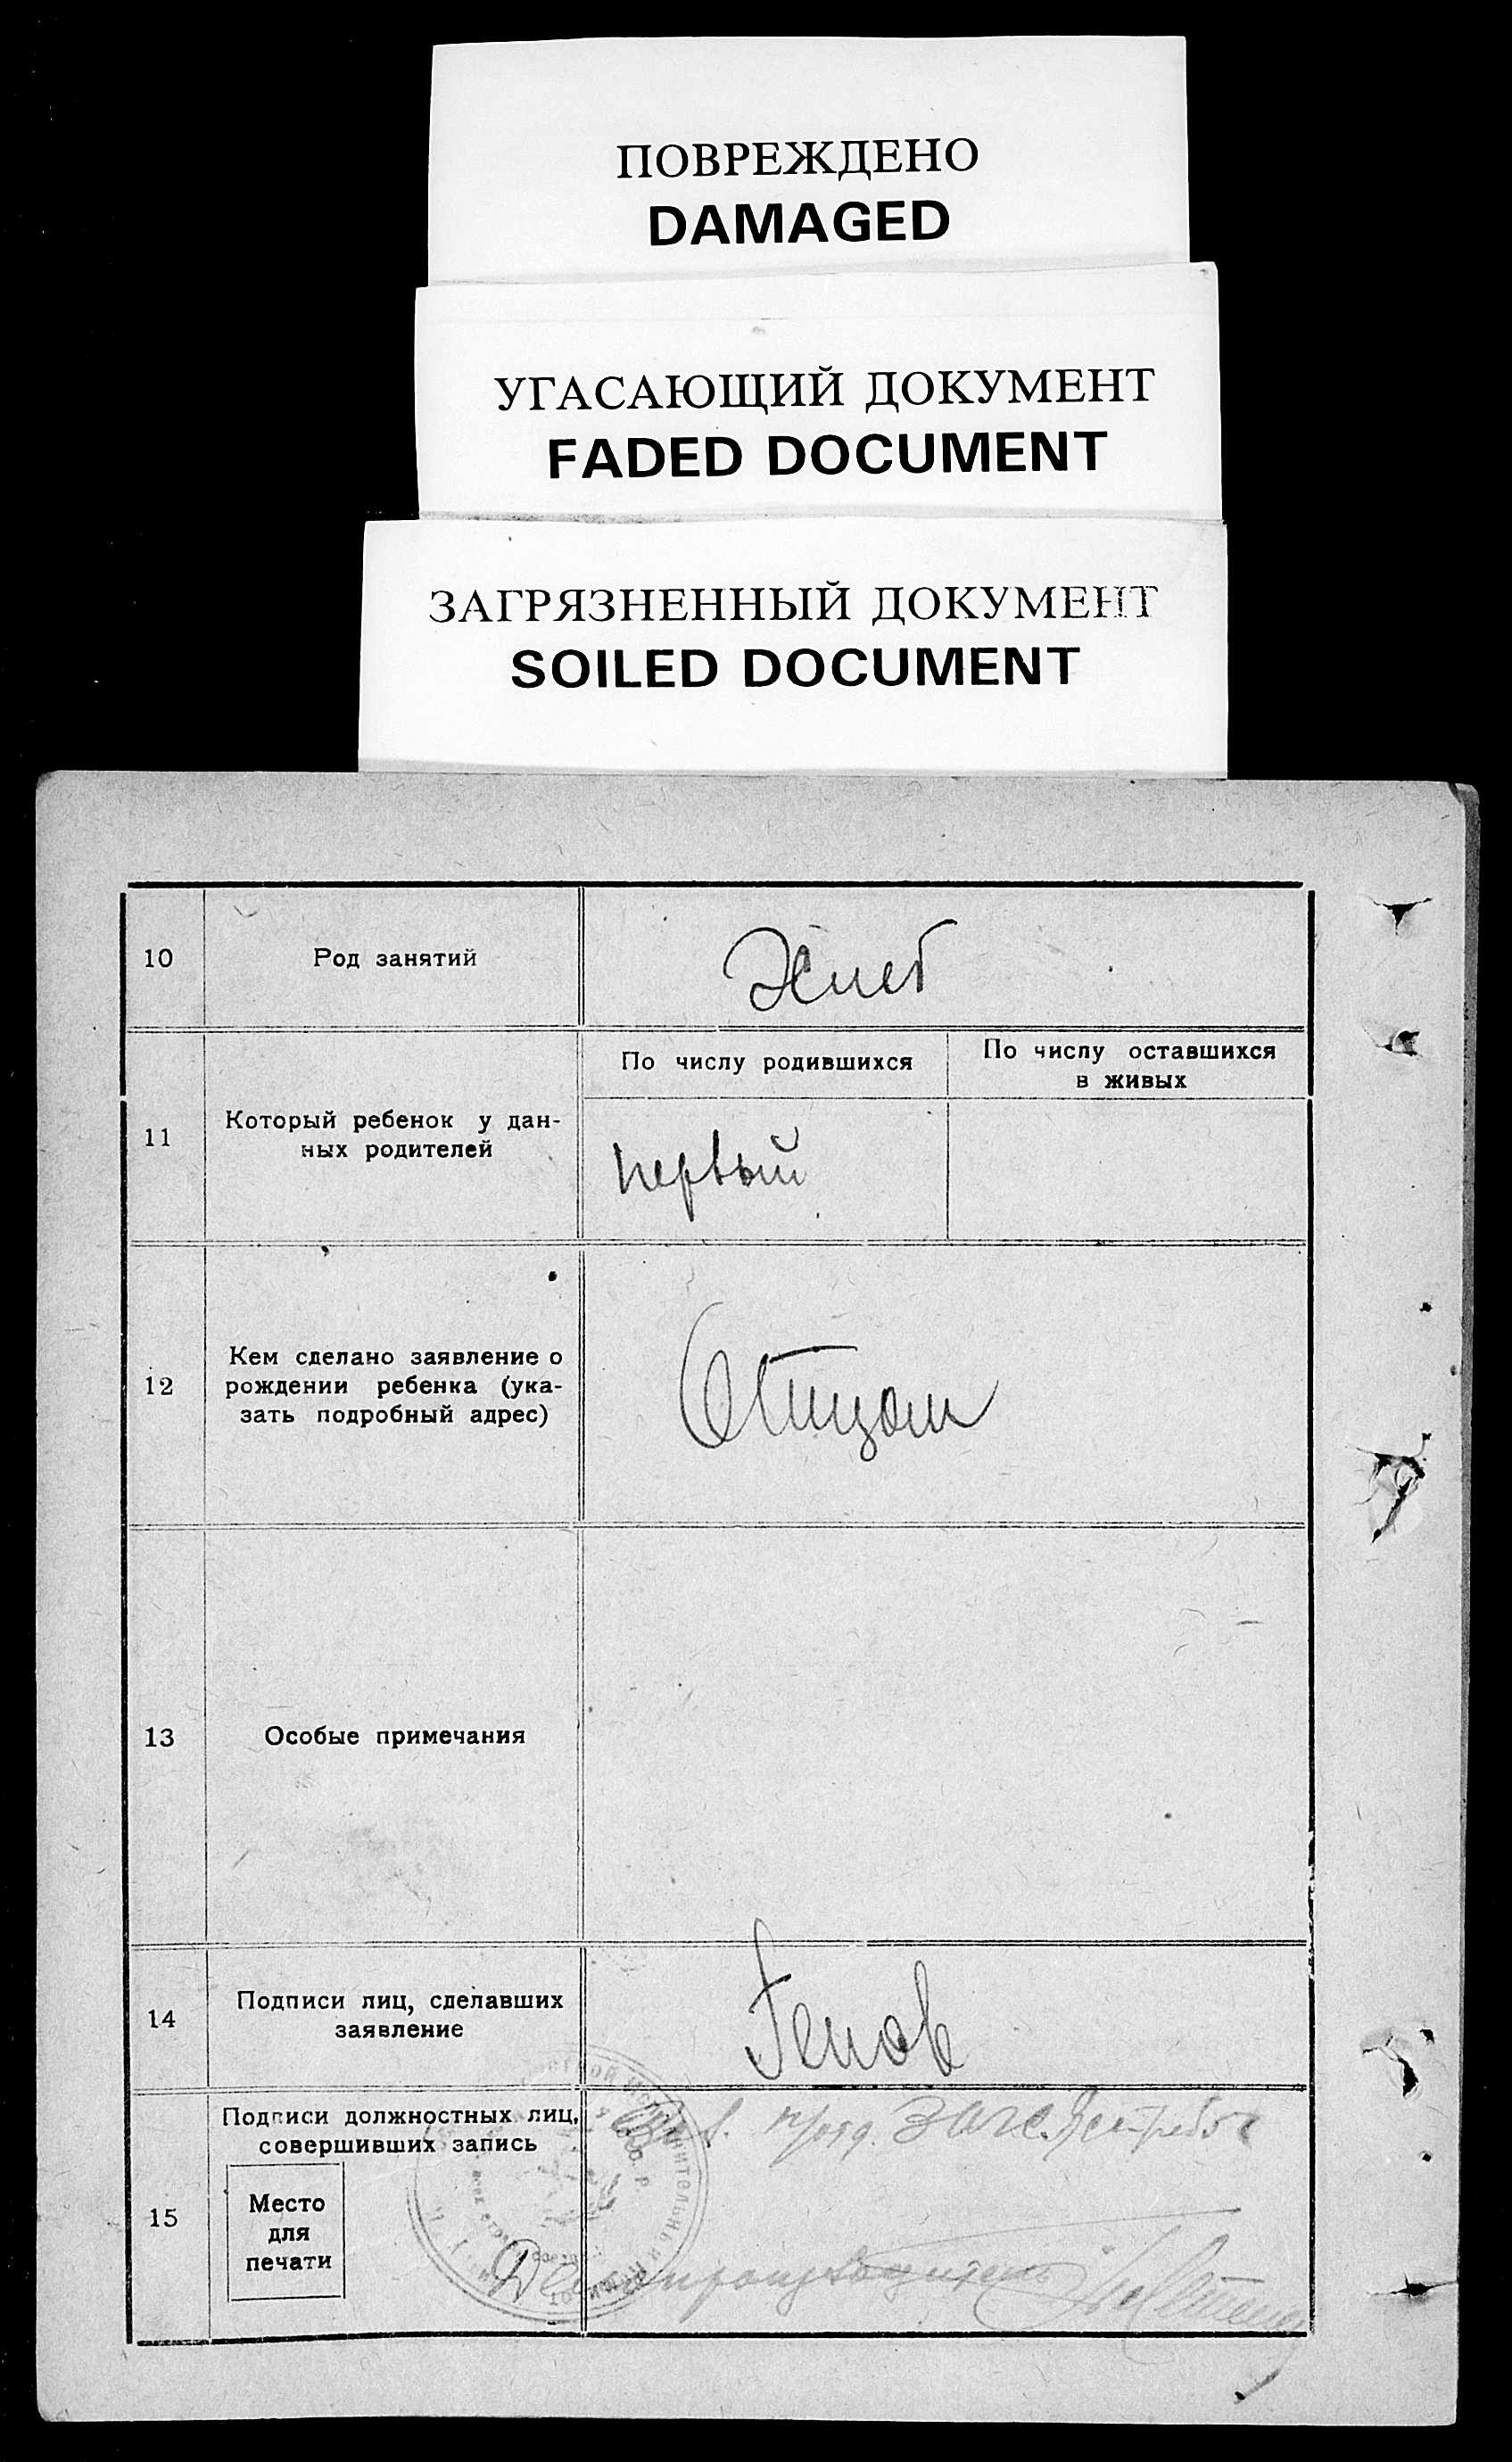 ПОВРЕЖДЕНО
DAMAGED
УГАСАЮЩИЙ ДОКУМЕНТ
FADED DOCUMENT
ЗАГРЯЗНЕННЫЙ ДОКУМЕНТ
SOILED DOCUMENT
10
Род занятий
11
Который ребенок у дан-
ных родителей
По числу родившихся
По числу оставшихся
в живых
первый
12
Кем сделано заявление о
рождении ребенка (ука-
зать подробный адрес)
Отцом
13
Особые примечания
14
Подписи лиц, сделавших
заявление
15
Подписи должностных лиц,
совершивших запись
Место
для
печати
Зав. загс
Делопроизводитель